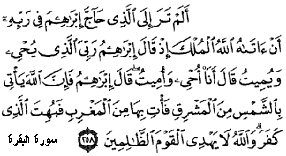 أَلَمْ تَرَ إِلَى ٱلَّذِى حَآجَّ إِبْرَٰهِـۧمَ فِى رَبِّهِۦٓ
أَنْ ءَاتَىٰهُ ٱللَّهُ ٱلْمُلْكَ إِذْ قَالَ إِبْرَٰهِـۧمُ رَبِّىَ ٱلَّذِى يُحْىِۦ
وَيُمِيتُ قَالَ أَنَا۠ أُحْىِۦ وَأُمِيتُ ۖ قَالَ إِبْرَٰهِـۧمُ فَإِنَّ ٱللَّهَ يَأْتِى
بِٱلشَّمْسِ مِنَ ٱلْمَشْرِقِ فَأْتِ بِهَا مِنَ ٱلْمَغْرِبِ فَبُهِتَ ٱلَّذِى
كَفَرَ ۗ وَٱللَّهُ لَا يَهْدِى ٱلْقَوْمَ ٱلظَّٰلِمِينَ ٢٥٨ سورة البقرة